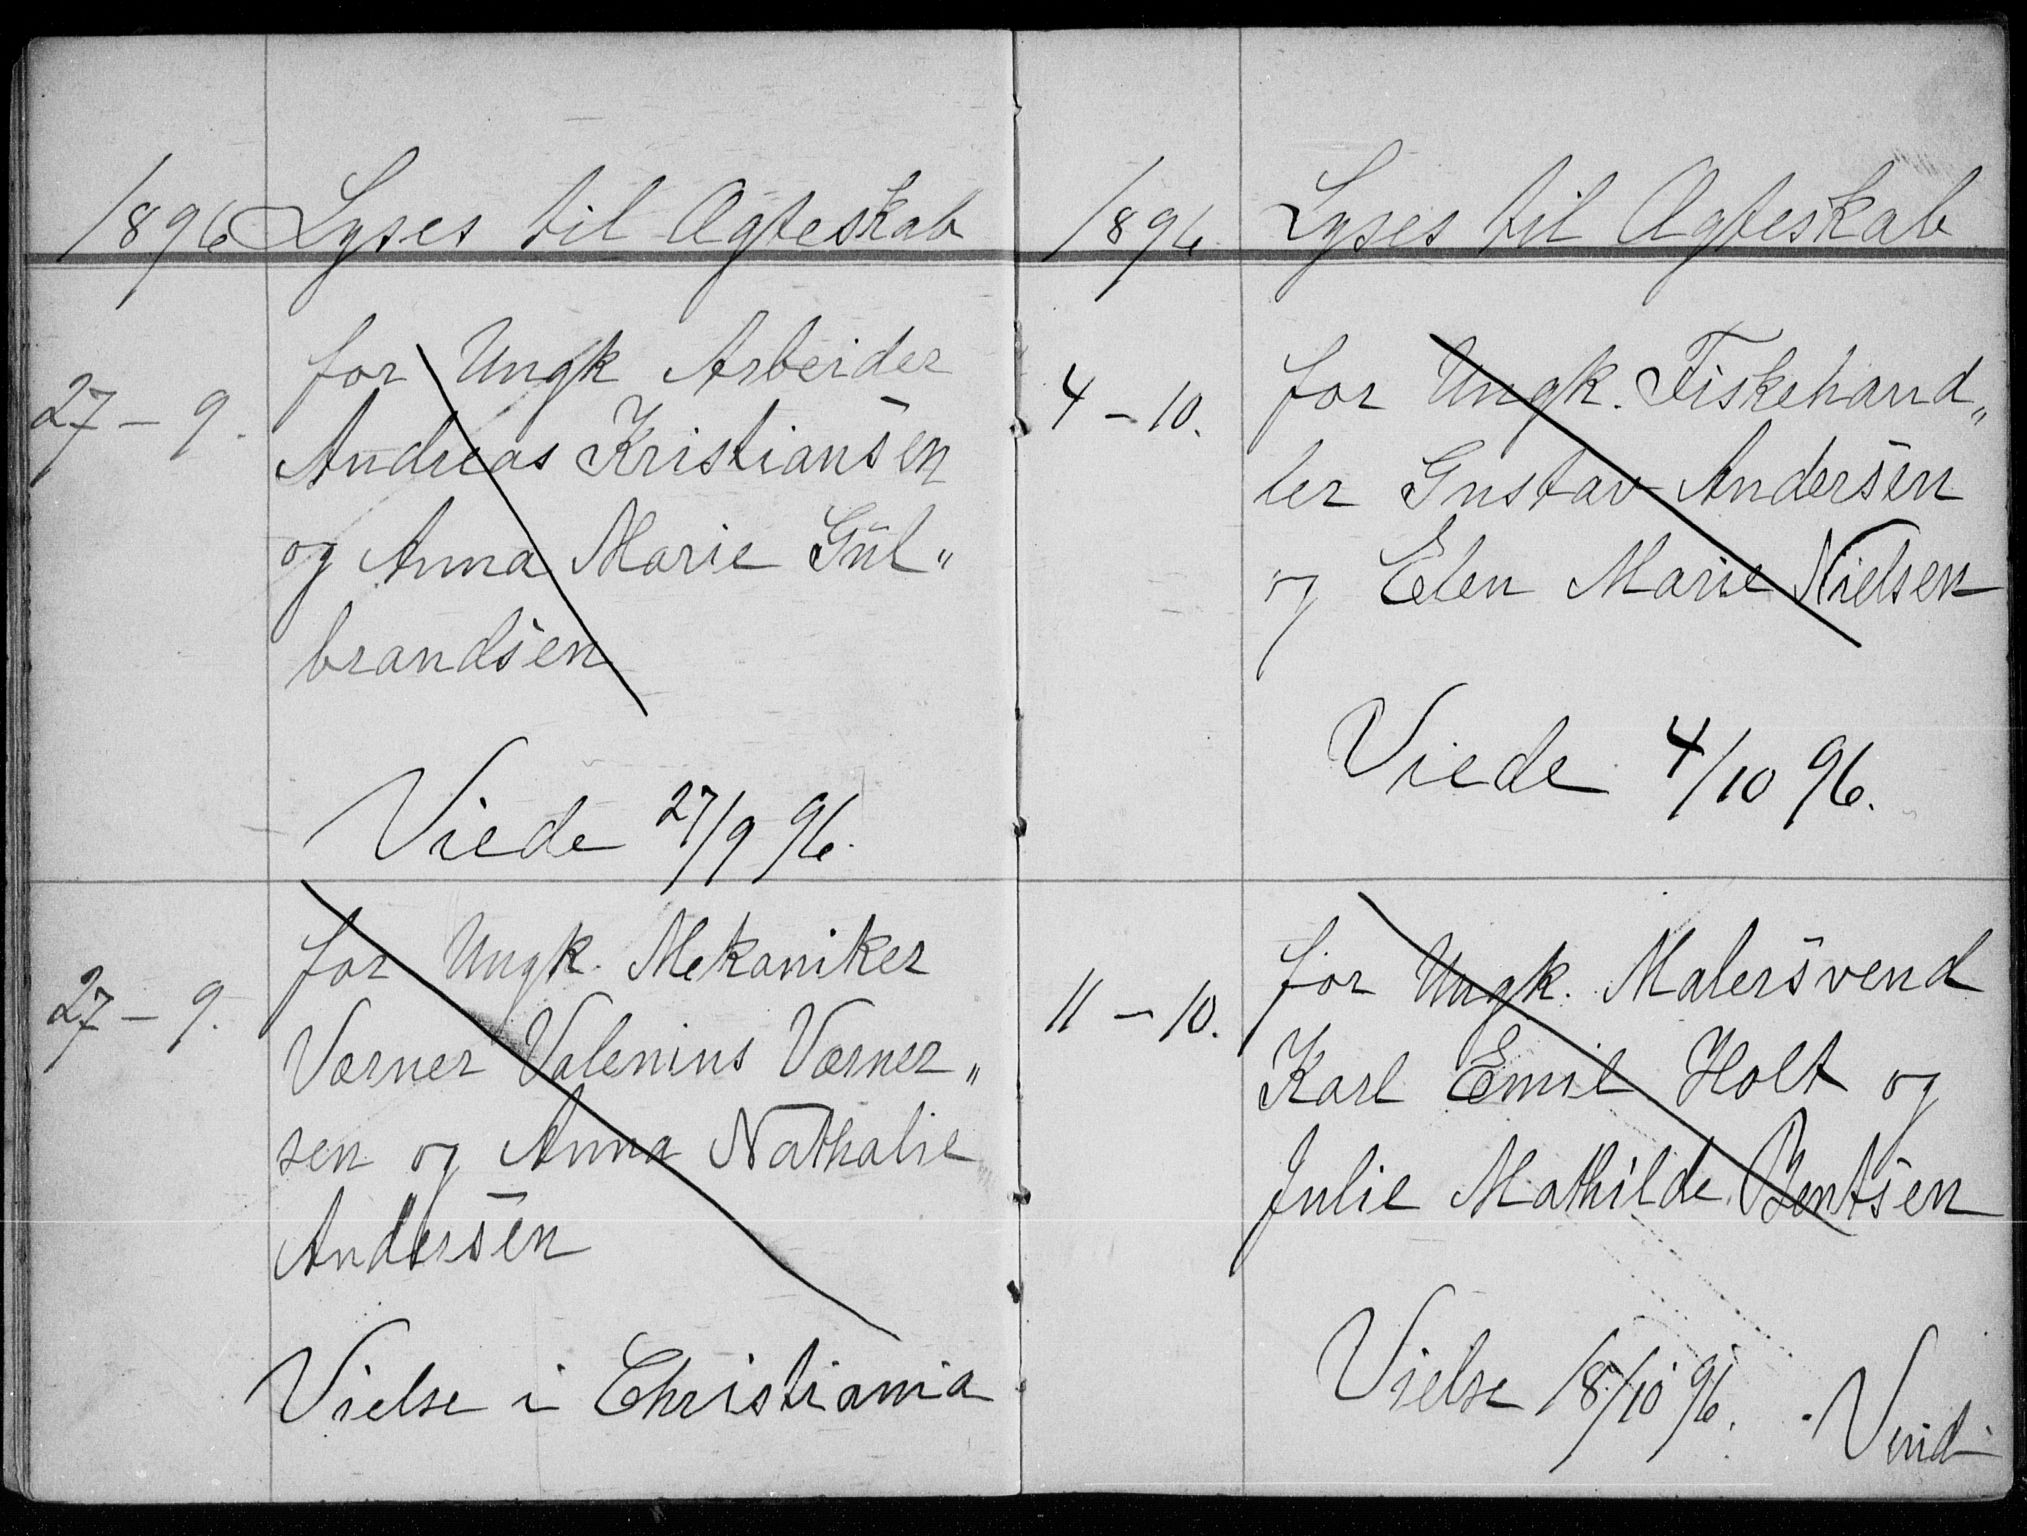 1896 Lyses til Ægteskab
27 - 9. for Ungk Arbeider
Andreas Kristiansen
og Anna Marie Gul„
brandsen
Viede 27/9 96.
27 - 9. for Ungk. Mekaniker
Værner Valenius Værner„
sen og Anna Nathalie
Andersen
Vielse i Christiania
1896. Lyses til Ægteskab
4 - 10. for Ungk. Fiskehand„
ler Gustav Andersen
og Elen Marie Nielsen
Viede 4/10 96.
11 - 10. for Ungk. Malersvend
Karl Emil Holt og
Julie Mathilde Bentsen
Vielse 18/10 96. Vend